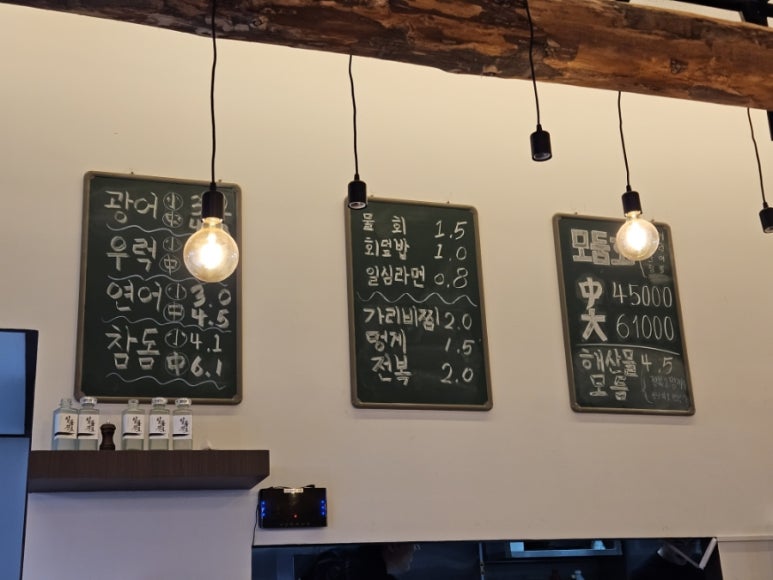 광어 小 3.0
中
우럭 小
中
연어 小 3.0
中 4.5
참돔 小 4.1
中 6.1
물 회 1.5
회덮밥 1.0
일심라면 0.8
가리비찜 2.0
멍게 1.5
전복 2.0
모둠
中 45000
大 61000
해산물 4.5
모둠